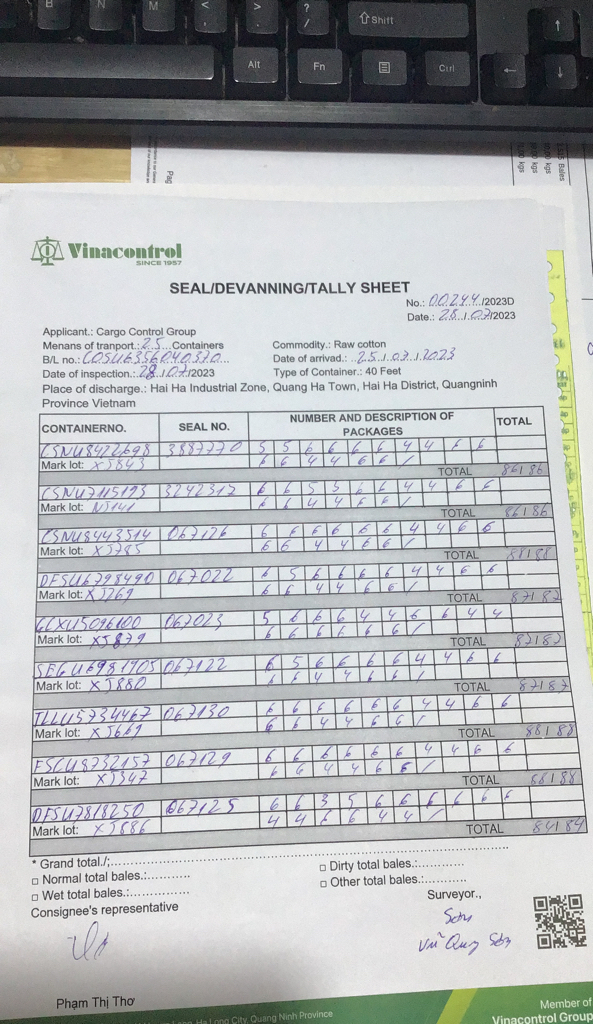 B
N
M
<
>
?
/
⇧Shift
↑
Alt
Fn
Ctrl
←
↓
Bales
kgs
kgs
Pag
Vinacontrol
SINCE 1957
SEAL/DEVANNING/TALLY SHEET
No.: 00244/2023D
Date.: 28/07/2023
Applicant.: Cargo Control Group
Menans of tranport.: 25 Containers
Commodity.: Raw cotton
B/L no.: COSU6356040370
Date of arrivad.: 25/07/2023
Date of inspection.: 28/07/2023
Type of Container.: 40 Feet
Place of discharge.: Hai Ha Industrial Zone, Quang Ha Town, Hai Ha District, Quangninh
Province Vietnam
CONTAINERNO.
SEAL NO.
NUMBER AND DESCRIPTION OF
PACKAGES
TOTAL
CSNU8422698 3887770 5 5 6 6 6 6 4 4 6 6
Mark lot: XJ843 6 6 4 4 6 6 /
TOTAL 86/86
CSNU7115193 3242312 6 6 5 5 6 6 4 4 6 6
Mark lot: 6 6 4 4 6 6 /
TOTAL 86/86
CSNU8443514 067126 6 6 6 6 6 6 4 4 6 6
Mark lot: XJ785 6 6 4 4 6 6 /
TOTAL 88/88
DFSU6798490 067022 6 5 6 6 6 6 4 4 6 6
Mark lot: XJ769 6 6 4 4 6 6 /
TOTAL 87/87
067023 5 6 6 6 4 4 6 6 4 4
Mark lot: XJ879 6 6 6 6 6 6 /
TOTAL 87/87
SEGU6981905 067122 6 5 6 6 6 6 4 4 6 6
Mark lot: XJ880 6 6 4 4 6 6 /
TOTAL 87/87
TLLU5734467 067130 6 6 6 6 6 6 4 4 6 6
Mark lot: XJ661 6 6 4 4 6 6 /
TOTAL 88/88
FSCU8732157 067129 6 6 6 6 6 6 4 4 6 6
Mark lot: XJ347 6 6 4 4 6 6 /
TOTAL 88/88
DFSU7818250 067125 6 6 3 5 6 6 6 6 6 6
Mark lot: XJ886 4 4 6 6 4 4 /
TOTAL 84/84
* Grand total./;
□ Normal total bales.:
□ Dirty total bales.:
□ Wet total bales.:
□ Other total bales.:
Consignee's representative
Surveyor.,
Sơn
Vũ Quang Sơn
Phạm Thị Thơ
Ha Long City, Quang Ninh Province
Member of
Vinacontrol Group